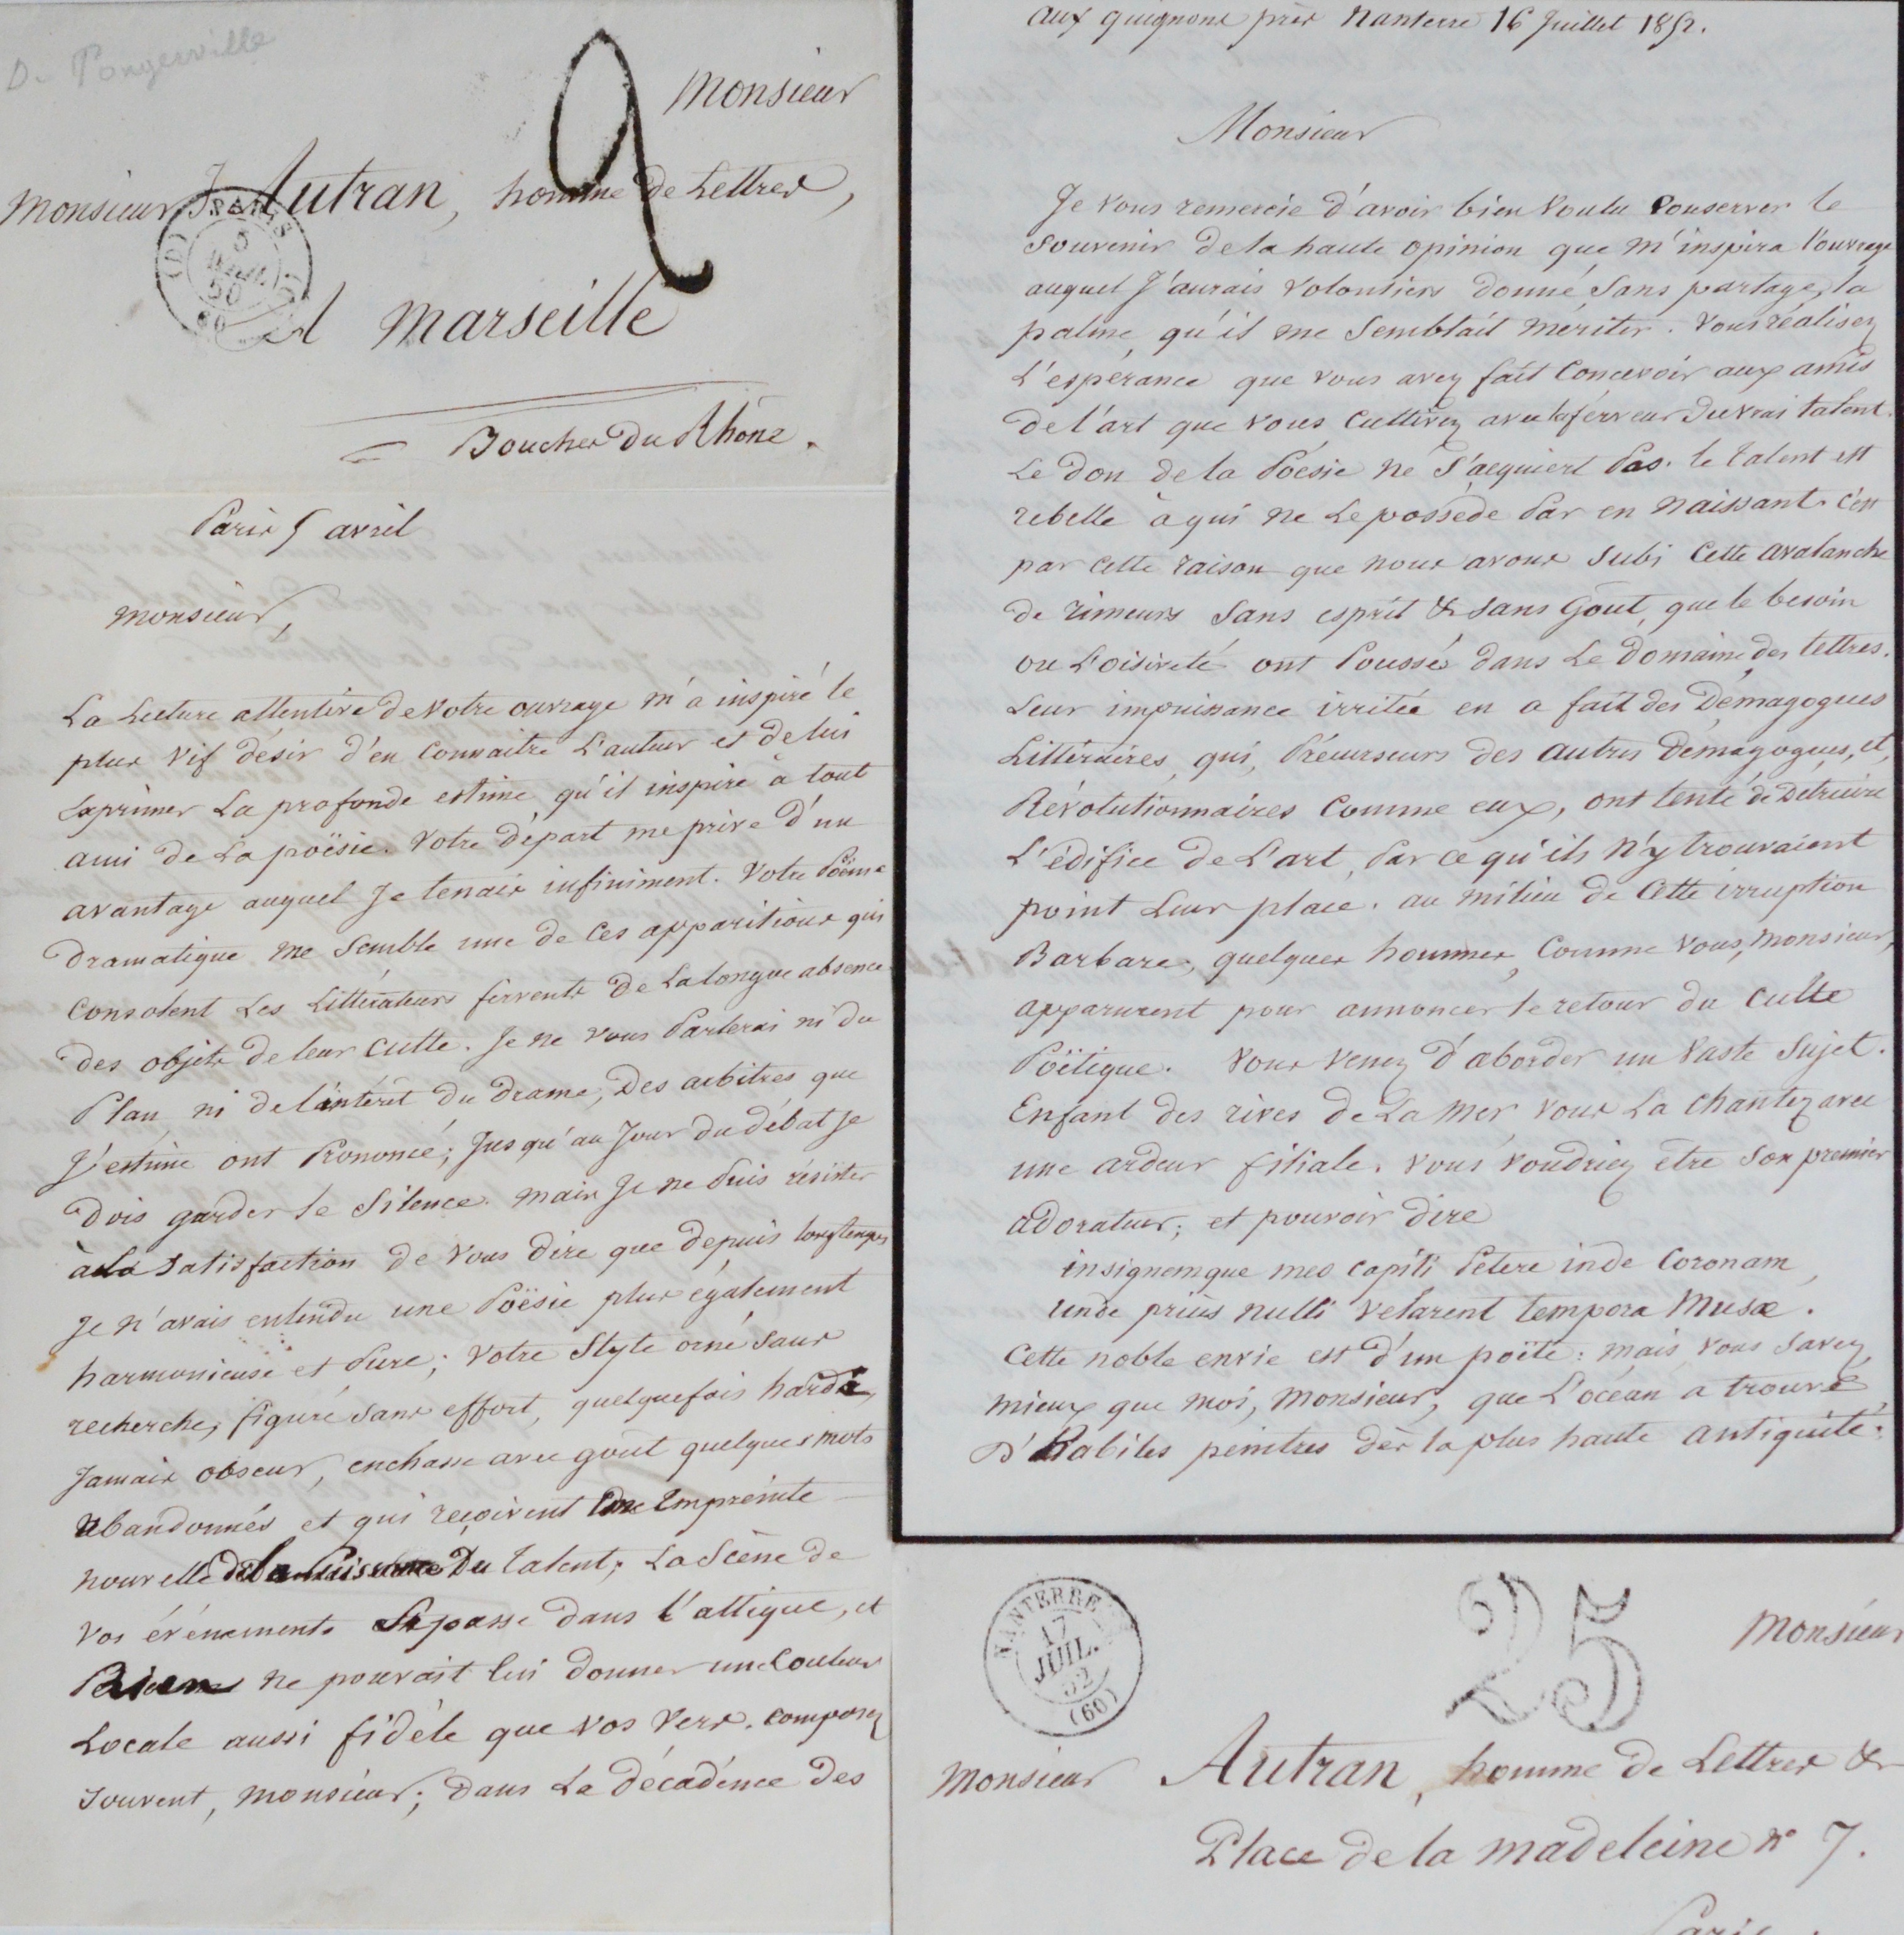 D. Pongerville
Monsieur
Monsieur J. Autran, homme de Lettres,
2
PARIS
5
AVRIL
50
(60)
à Marseille
Bouches du Rhône.
Paris 5 avril
Monsieur,
La Lecture attentive de votre ouvrage m'a inspiré le
plus vif désir d'en connaitre L'auteur et de lui
exprimer La profonde estime qu'il inspire à tout
ami de La poësie. Votre départ me prive d'un
avantage auquel Je tenais infiniment. Votre Poëme
Dramatique me Semble une de ces apparitions qui
consolent Les Littérateurs fervents de La longue absence
des objets de leur culte. Je ne vous Parlerai ni du
Plan ni de l'intérêt du drame, Des arbitres que
J'estime ont Prononcé; Jusqu'au Jour du débat Je
Dois garder le Silence. mais Je ne Puis résister
à la Satisfaction de vous dire que depuis longtemps
Je n'avais entendu une Poësie plus également
harmonieuse et Pure; votre Style orné sans
recherche, figuré sans effort, quelquefois hardi,
Jamais obscur, enchasse avec goût quelques mots
abandonnés et qui reçoivent une Empreinte
nouvelle de la Puissance Du talent; La Scène de
vos événements Se passe dans l'attique, et
Rien ne pouvait lui donner une couleur
Locale aussi fidèle que vos vers. composez
souvent, monsieur; Dans La décadence des
aux guignons près Nanterre 16 Juillet 1852.
Monsieur
Je vous remercie d'avoir bien voulu conserver le
souvenir de la haute opinion que m'inspira l'ouvrage
auquel J'aurais volontiers donné Sans partage, la
palme qu'il me Semblait mériter. Vous réalisez
L'espérance que vous avez fait concevoir aux amis
de l'art que vous cultivez avec la ferveur du vrai talent.
Le Don de la Poesie ne S'acquiert Pas. le talent est
rebelle à qui ne Le possède Pas en naissant. c'est
par cette raison que nous avons subi cette avalanche
de rimeurs Sans esprit & sans Gout, que le besoin
ou L'oisiveté ont Poussés dans Le Domaine des lettres.
Leur impuissance irritée en a fait des Démagogues
Littéraires, qui, Précurseurs des autres Démagogues, et
Révolutionnaires comme eux, ont tenté de Détruire
L'édifice de L'art, Par ce qu'ils n'y trouvaient
point Leur place. au milieu de cette irruption
Barbare, quelques hommes, Comme vous, Monsieur,
apparurent pour annoncer le retour du culte
Poëtique. Vous venez d'aborder un vaste Sujet.
Enfant des rives de La mer vous La chantez avec
une ardeur filiale. vous voudriez être son premier
adorateur; et pouvoir dire
insignemque meo capiti Petere inde Coronam,
unde priùs nulli velarent tempora Musæ.
Cette noble envie est d'un poëte: mais vous savez
mieux que moi, Monsieur, que L'océan a trouvé
D'habiles peintres dès la plus haute antiquité.
NANTERRE
17
JUIL.
52
(60)
25
Monsieur
Monsieur Autran, homme de Lettres &
Place de la madeleine n° 7.
Paris.